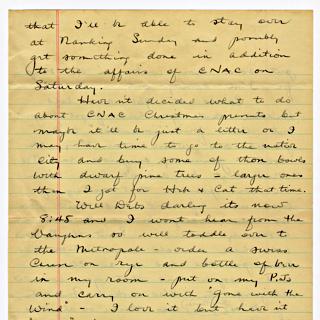 that I'll be able to stay over
at Nanking Sunday and possibly
get something done in addition
to the affairs of CNAC on
Saturday.
Haven't decided what to do
about CNAC Christmas presents but
maybe it'll be just a letter or I
may have time to go to the native
city and buy some of then bowls
with dwarf pine trees - larger ones
then I got for Hsh & Cat that time.
Well Debs darling its now
8:45 and I wont hear from the
Vaughns so will toddle over to
the Metropole - order a swiss
Cheese on rye and bottle of beer
in my room - put on my P.Js
and carry on with "Gone with the
Wind" - I love it but haven't